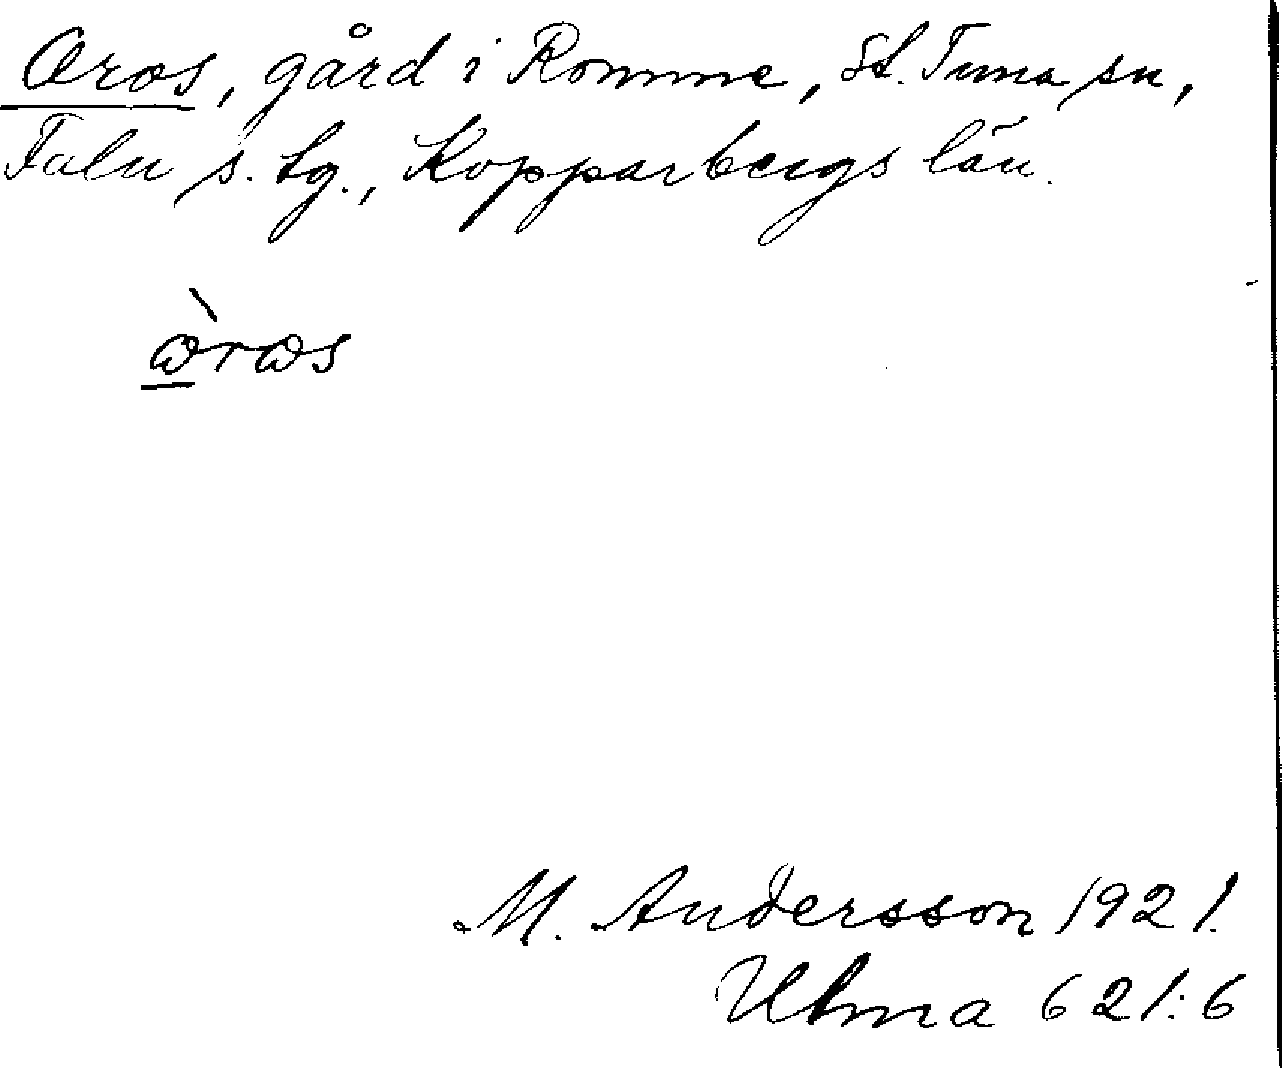 Oros, gård i Romme, St. Tuna sn,
Falu s. tg., Kopparbergs län.
ὼrωs
M. Andersson 1921.
Ulma 621:6